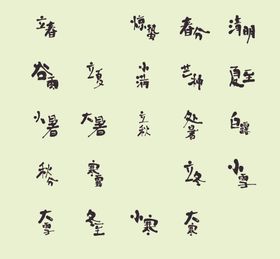 立春 惊蛰 春分 清明
谷雨 立夏 小满 芒种 夏至
小暑 大暑 立秋 处暑 白露
秋分 寒露 立冬 小雪
大雪 冬至 小寒 大寒